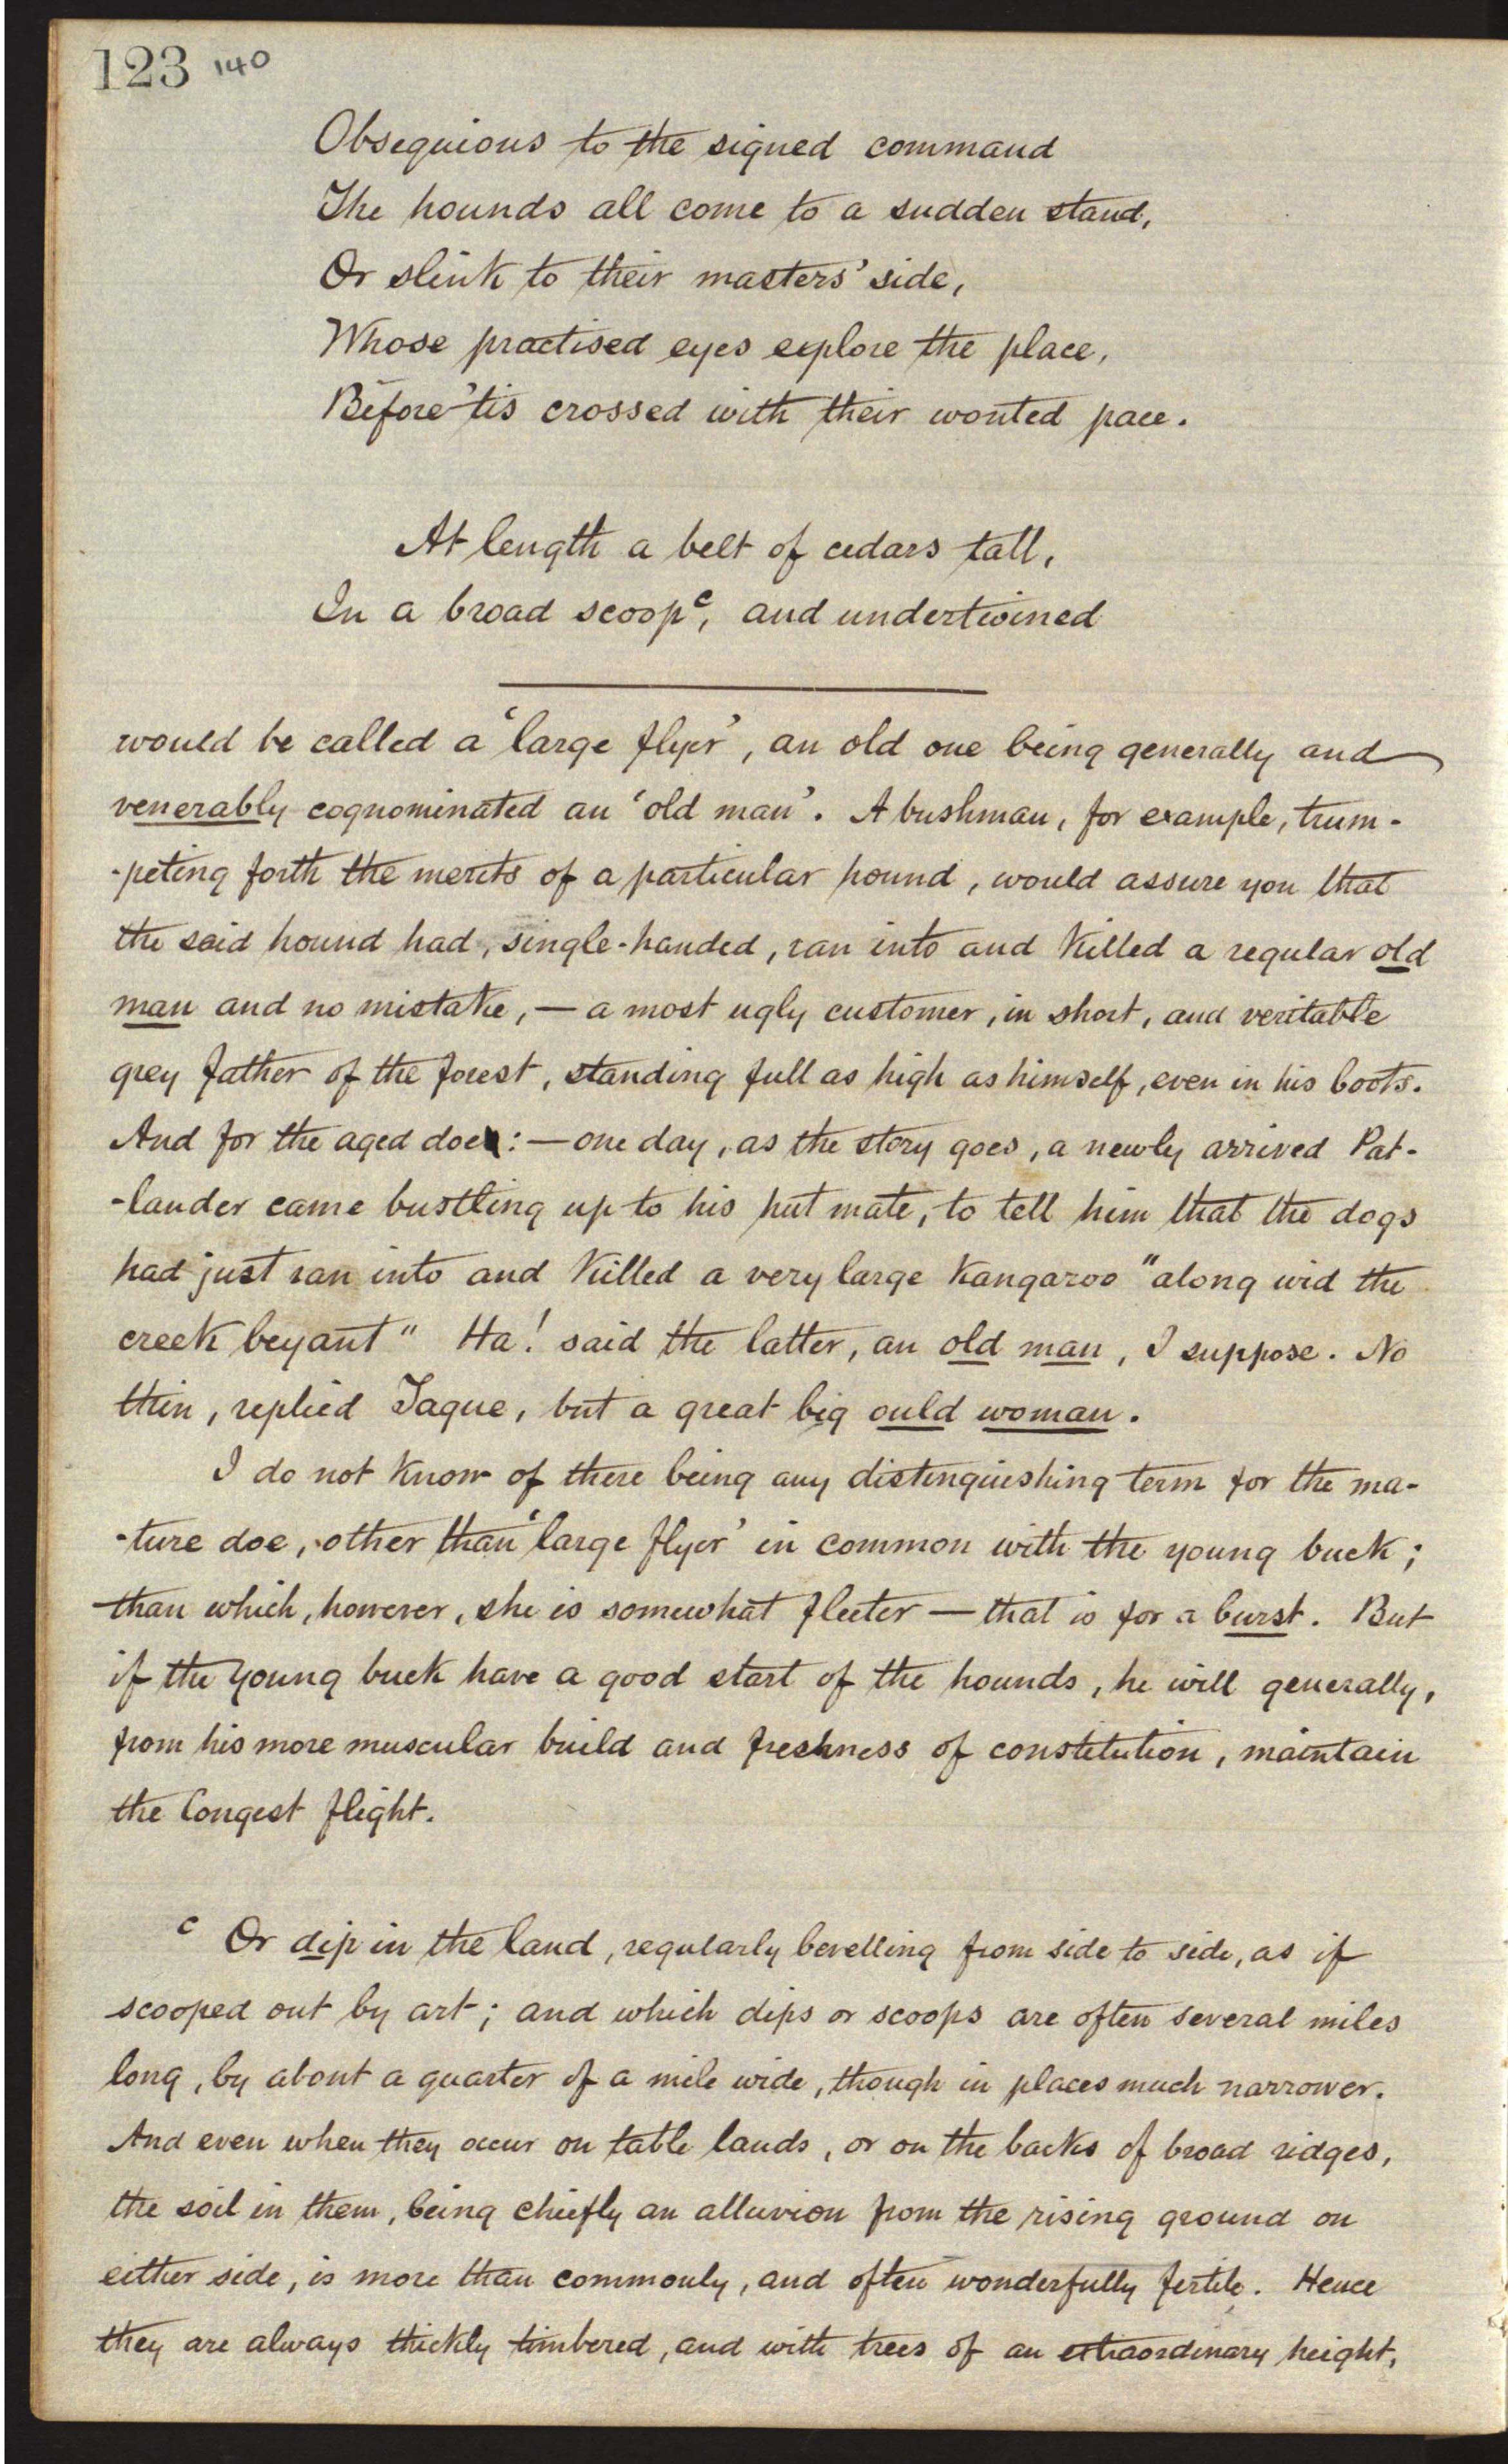 123 140
Obsequious to the signed command
The hounds all come to a sudden stand,
Or slink to their masters' side,
Whose practised eyes explore the place,
Before 'tis crossed with their wonted pace.
At length a belt of cedars tall,
In a broad scoop c, and undertwined
would be called a 'large flyer', an old one being generally and
venerably cognominated an 'old man'. A bushman, for example, trum-
-peting forth the merits of a particular hound, would assure you that
the said hound had, single-handed, ran into and killed a regular old
man and no mistake, — a most ugly customer, in short, and veritable
grey father of the forest, standing full as high as himself, even in his boots.
And for the aged doe: — one day, as the story goes, a newly arrived Pat-
-lander came bustling up to his hut mate, to tell him that the dogs
had just ran into and killed a very large Kangaroo "along wid the
creek beyant" Ha! said the latter, an old man, I suppose. No
thin, replied Taque, but a great big ould woman.
I do not know of there being any distinguishing term for the ma-
-ture doe, other than 'large flyer' in common with the young buck;
than which, however, she is somewhat fleeter — that is for a burst. But
if the young buck have a good start of the hounds, he will generally,
from his more muscular build and freshness of constitution, maintain
the longest flight.
c Or dip in the land, regularly bevelling from side to side, as if
scooped out by art; and which dips or scoops are often several miles
long, by about a quarter of a mile wide, though in places much narrower.
And even when they occur on table lands, or on the backs of broad ridges,
the soil in them, being chiefly an alluvion from the rising ground on
either side, is more than commonly, and often wonderfully fertile. Hence
they are always thickly timbered, and with trees of an extraordinary height,